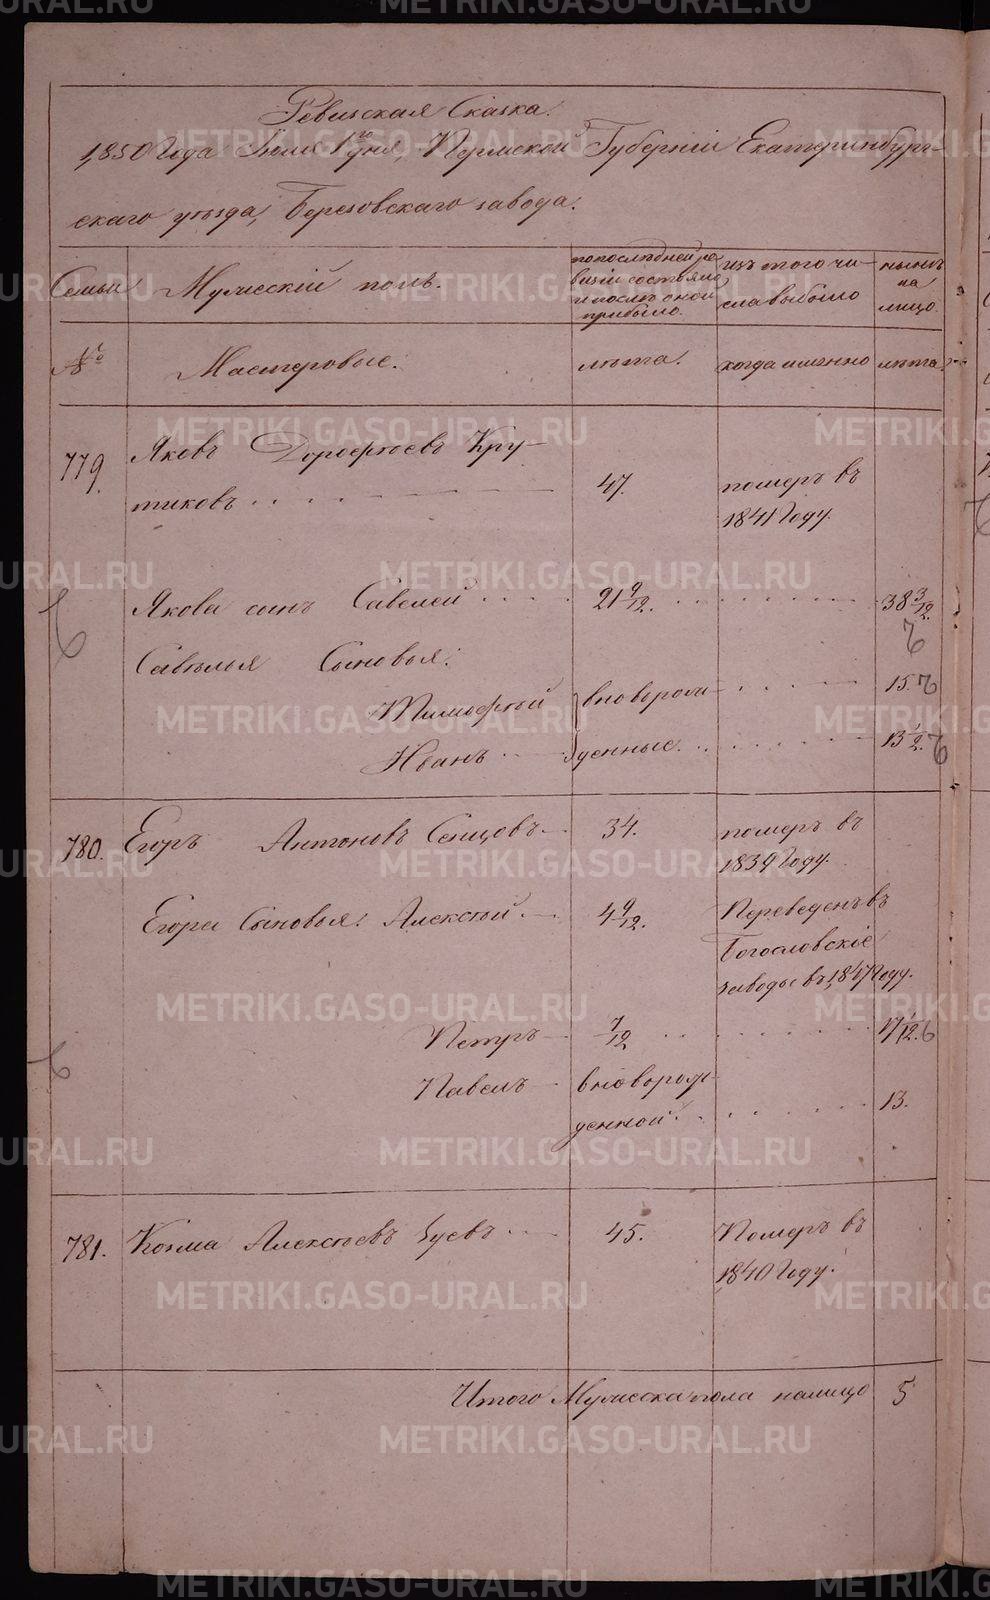 Ревизская Сказка.
1850 Года Іюля 1го дня, Пермской Губерніи Екатеринбург-
скаго уѣзда, Березовскаго завода.
Семьи
Мужескій полъ.
по послѣдней ре-
визіи состояло
и послѣ оной
прибыло.
изъ того чи-
сла выбыло
нынѣ
на
лицо.
№
Мастеровые.
лѣта.
когда именно
лѣта.
779.
Яковъ Дорофѣевъ Кру-
тиковъ
47.
померъ въ
1841 Году.
Якова сынъ Савелей
21 9/12.
38 3/12.
Савелья Сыновья:
Тимофѣй
Иванъ
вноворож-
денные.
15.
13 1/2.
780.
Егоръ Антоновъ Сенцовъ
34.
померъ въ
1839 Году.
Егора Сыновья: Алексѣй.
4 9/12.
Переведенъ въ
Богословскіе
заводы въ 1847 Году.
Петръ
7/12
17 1/12.
Павелъ
вноворож-
денной.
13.
781.
Козма Алексѣевъ Зуевъ
45.
Померъ въ
1840 Году.
Итого Мужеска пола налицо
5
METRIKI.GASO-URAL.RU